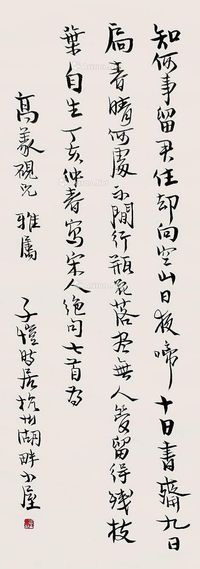 知何事留君住却向空山日夜啼十日書齋九日
扃春晴何處不閒行瓶花落盡無人管留得殘枝
葉自生丁亥仲春寫宋人絕句七首為
高羲硯兄雅屬
子愷時居杭州湖畔小屋